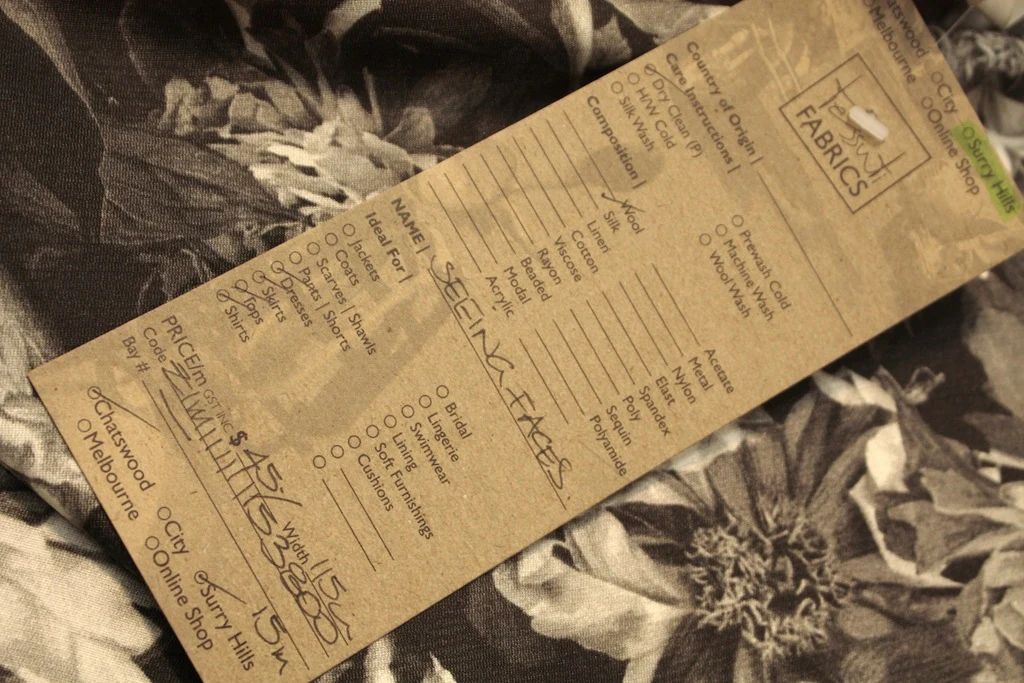 Chatswood
City
Surry Hills
Melbourne
Online Shop
Tessuti
FABRICS
Country of Origin |
Care Instructions |
Dry Clean (P)
H/W Cold
Silk Wash
Prewash Cold
Machine Wash
Wool Wash
Composition |
Wool
Silk
Linen
Cotton
Viscose
Rayon
Beaded
Modal
Acrylic
Acetate
Metal
Nylon
Elast
Spandex
Poly
Sequin
Polyamide
NAME | SEEING FACES.
Ideal For |
Jackets
Coats
Scarves | Shawls
Pants | Shorts
Dresses
Skirts
Tops
Shirts
Bridal
Lingerie
Swimwear
Lining
Soft Furnishings
Cushions
PRICE/m GST INC $ 45.- Width 115c
Code
Bay # 15m
Chatswood
City
Surry Hills
Melbourne
Online Shop